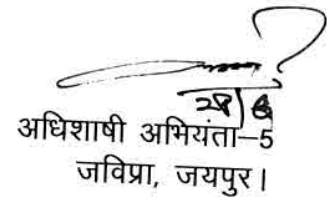 28/6
अधिशाषी अभियंता–5
जविप्रा, जयपुर।